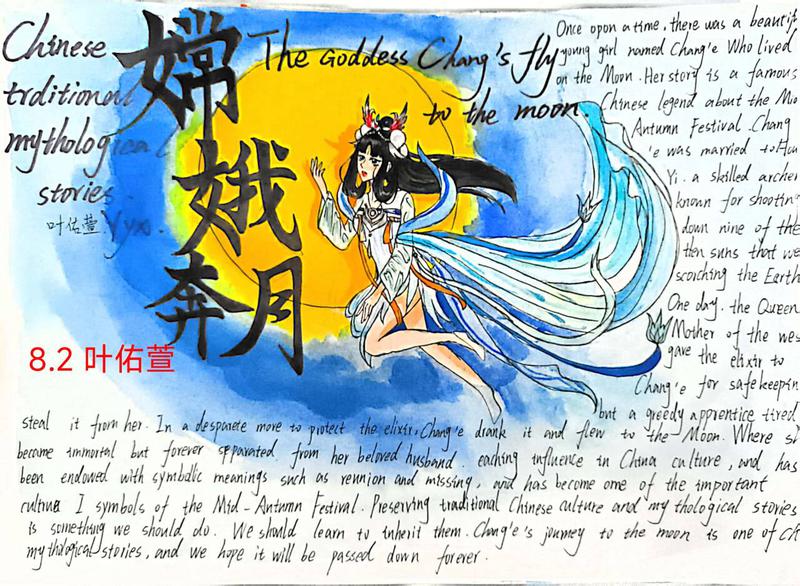 Chinese
trditional
mythological
stories.
叶佑萱 Yyx.
嫦娥奔月
The Goddess Chang's fly
to the moon.
8.2 叶佑萱
Once upon a time, there was a beautif
young girl named Chang'e Who lived
on the Moon. Her story is a famous
Chinese legend about the Mid
Autumn Festival. Chang
'e was married to Hou
Yi. a skilled archer
known for shooting
down nine of the
ten suns that we
scorching the Earth
One day. the Queen
Mother of the wes
gave the elixir to
Chang'e for safekeepin
but a greedy apprentice tired
steal it from her. In a desparate more to protect the elixir, Chang'e drank it and flew to the Moon. Where sh
became immortal but forever separated from her beloved husband. eaching influence in China culture, and has
been endowed with symbolic meanings such as reunion and missing, and has become one of the important
cultura I symbols of the Mid-Antumn Festival. Preserving traditional Chinese culture and my thological stories
is something we should do. We should learn to inherit them. Chang'e's journey to the moon is one of ch
my thological stories, and we hope it will be passed down forever.